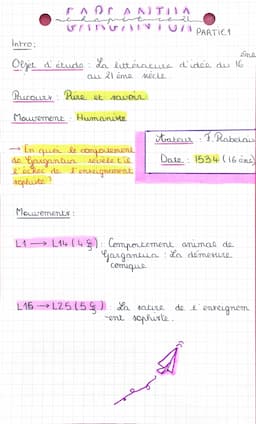 GARGANTUA
chapitre 21
PARTIE 1
Intro:
Objet d'étude : La littérature d'idée du 16 ème
au 21 ème siècle
Parcours : Rire et savoir
Mouvement : Humaniste
Auteur : F. Rabelais
Date : 1534 (16 ème)
→ En quoi le comportement
de Gargantua révèle t'il
l'échec de l'enseignement
sophiste ?
Mouvements :
L1 → L14 (4 §) : Comportement animal de
Gargantua : La démesure
comique
L15 → L25 (5 §) : La satire de l'enseignem
-ent sophiste.